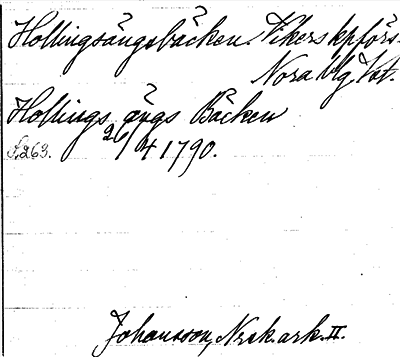 Hollingsängsbäcken. Vikers kpförs.
Nora blg, Vst.
Hollings ängs Bäcken
f. 263. 26/4 1790.
Johansson, Nrsk. ark. II.